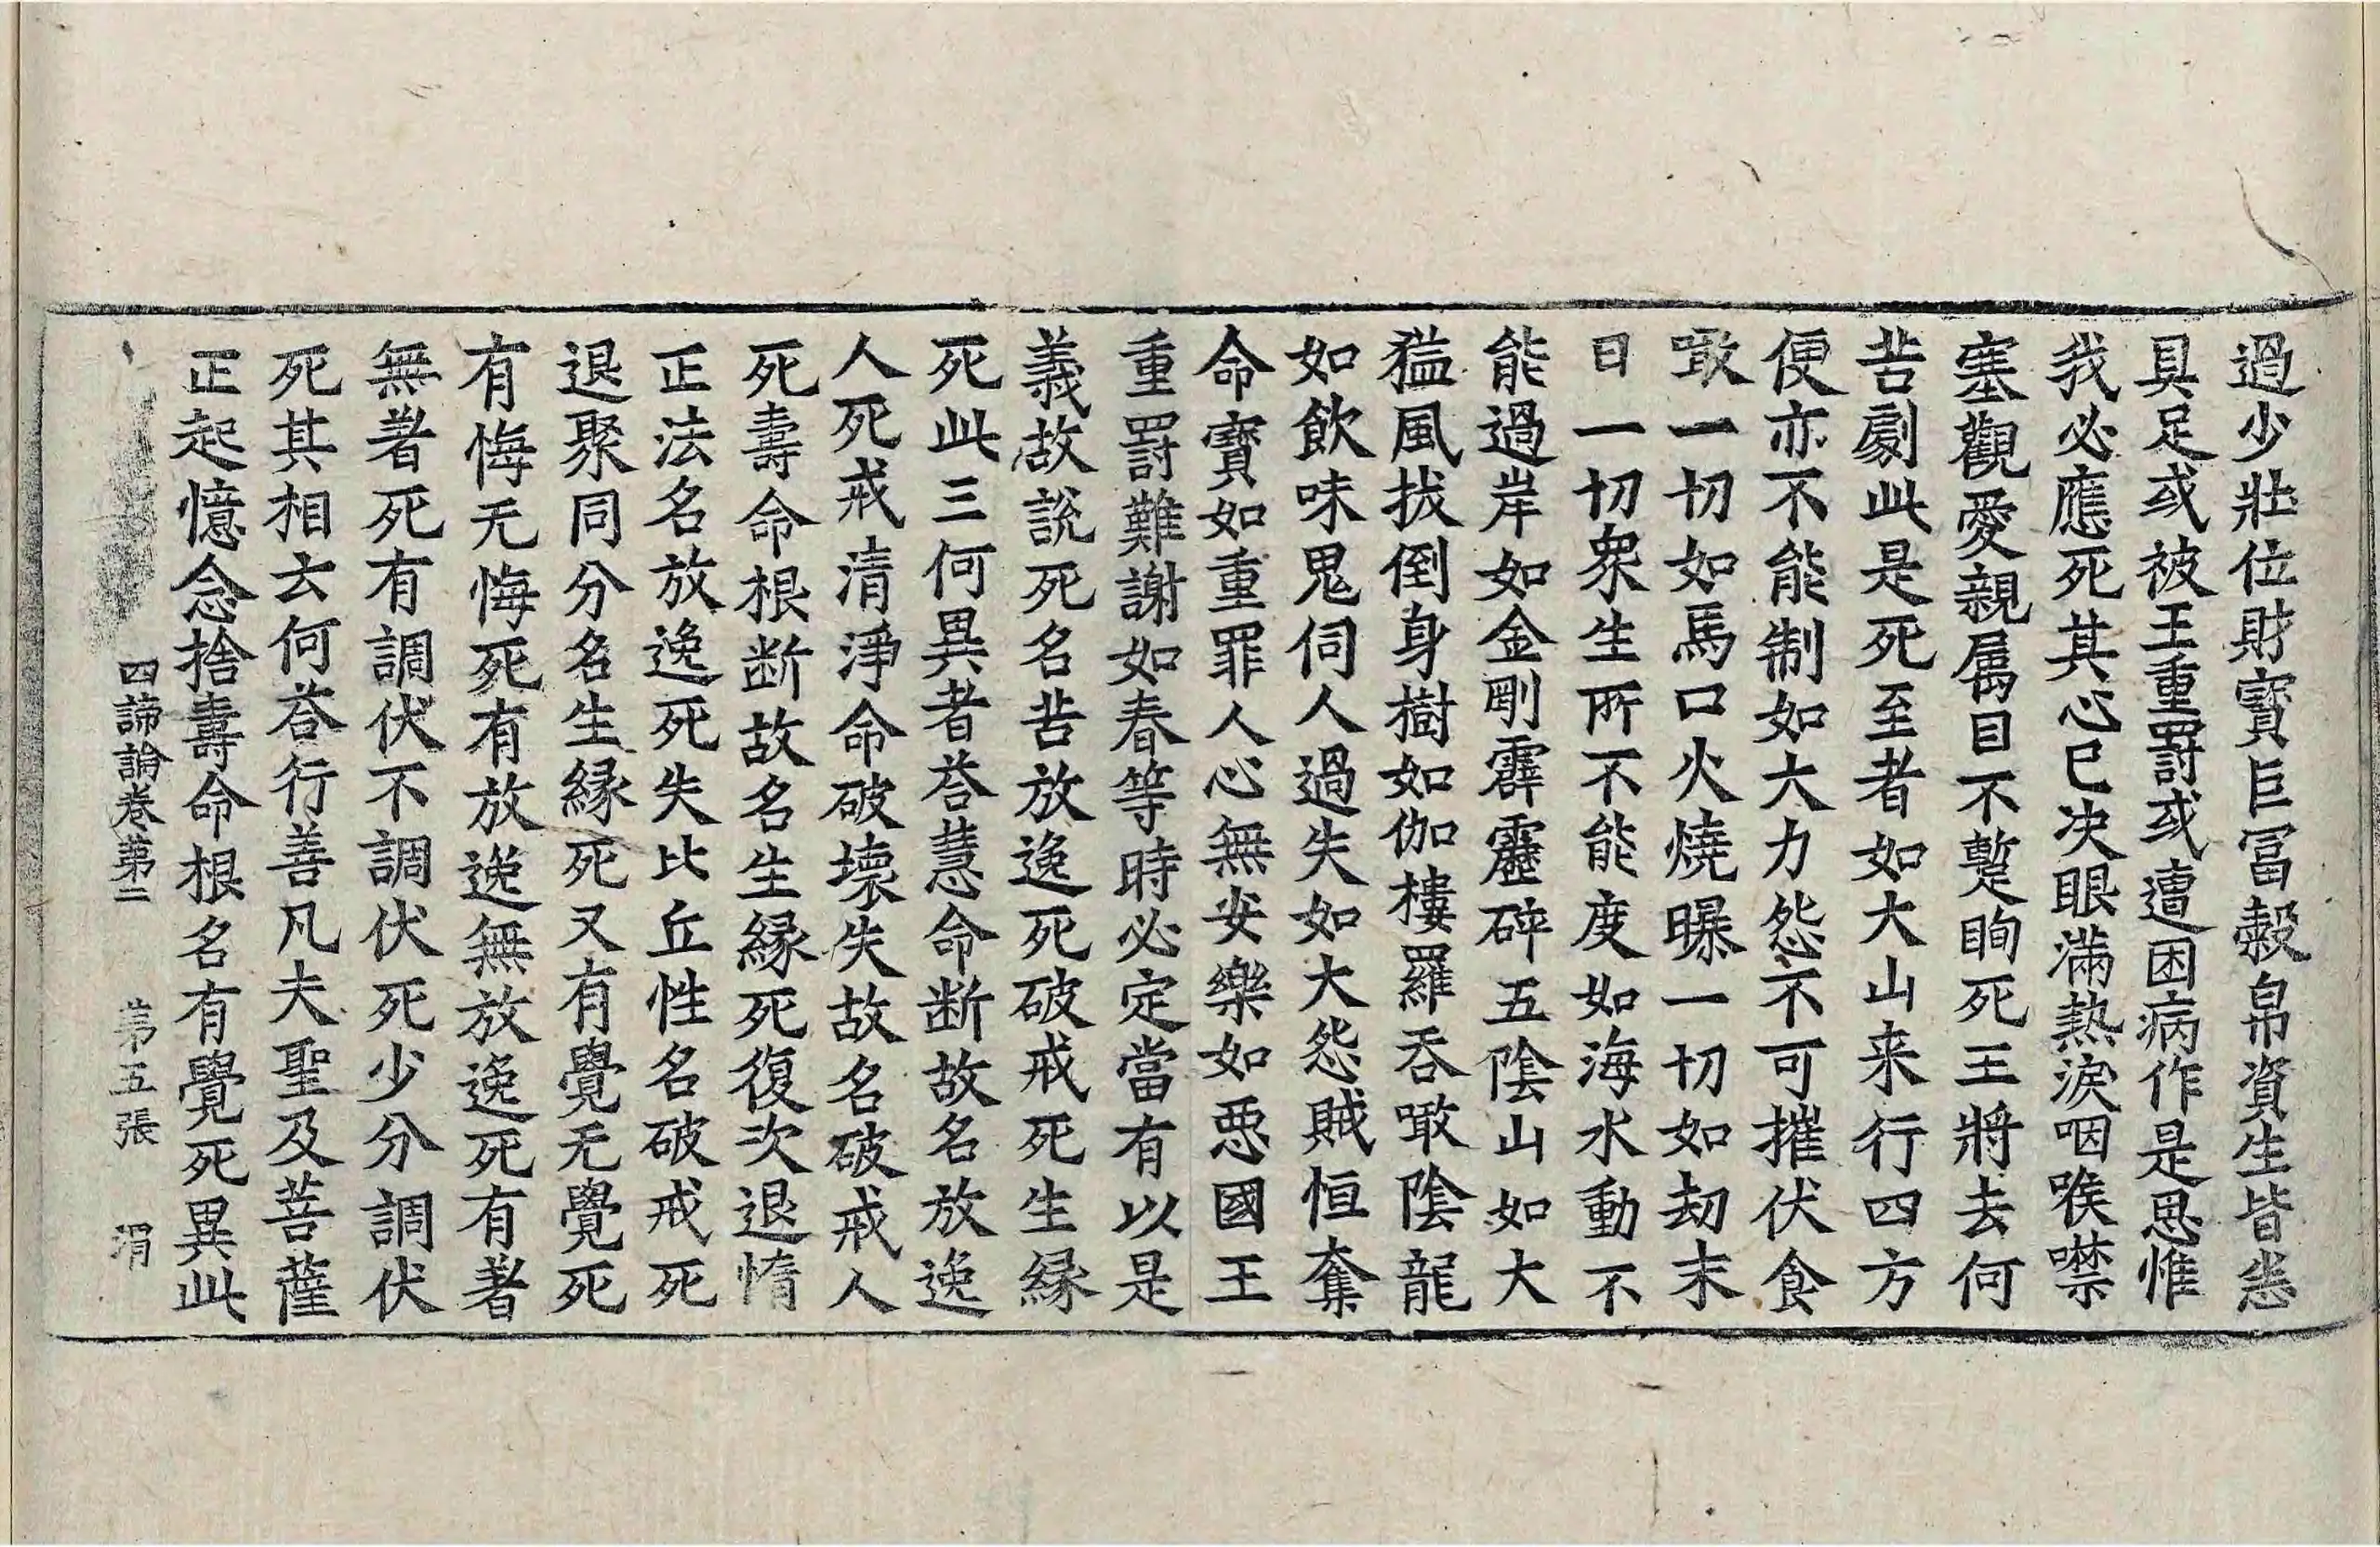 過少壯位財寶巨冨穀帛資生皆悉
具足或被王重罸或遭困病作是思惟
我必應死其心已决眼滿熱淚咽喉噤
塞觀愛親属目不蹔眴死王將去何
苦劇此是死至者如大山来行四方
便亦不能制如大力怨不可摧伏食
噉一切如馬口火燒曝一切如劫末
日一切衆生所不能度如海水動不
能過岸如金剛霹靂碎五陰山如大
猛風拔倒身樹如伽樓羅呑噉陰龍
如飲味鬼伺人過失如大怨賊恒奪
命寶如重罪人心無安樂如惡國王
重罸難謝如春等時必定當有以是
義故說死名苦放逸死破戒死生縁
死此三何異者荅慧命断故名放逸
人死戒清淨命破壞失故名破戒人
死壽命根断故名生縁死復次退惰
正法名放逸死失比丘性名破戒死
退聚同分名生縁死又有覺无覺死
有悔无悔死有放逸無放逸死有著
無著死有調伏不調伏死少分調伏
死其相云何荅行善凡夫聖及菩薩
正起憶念捨壽命根名有覺死異此
四諦論卷第二 第五張 渭